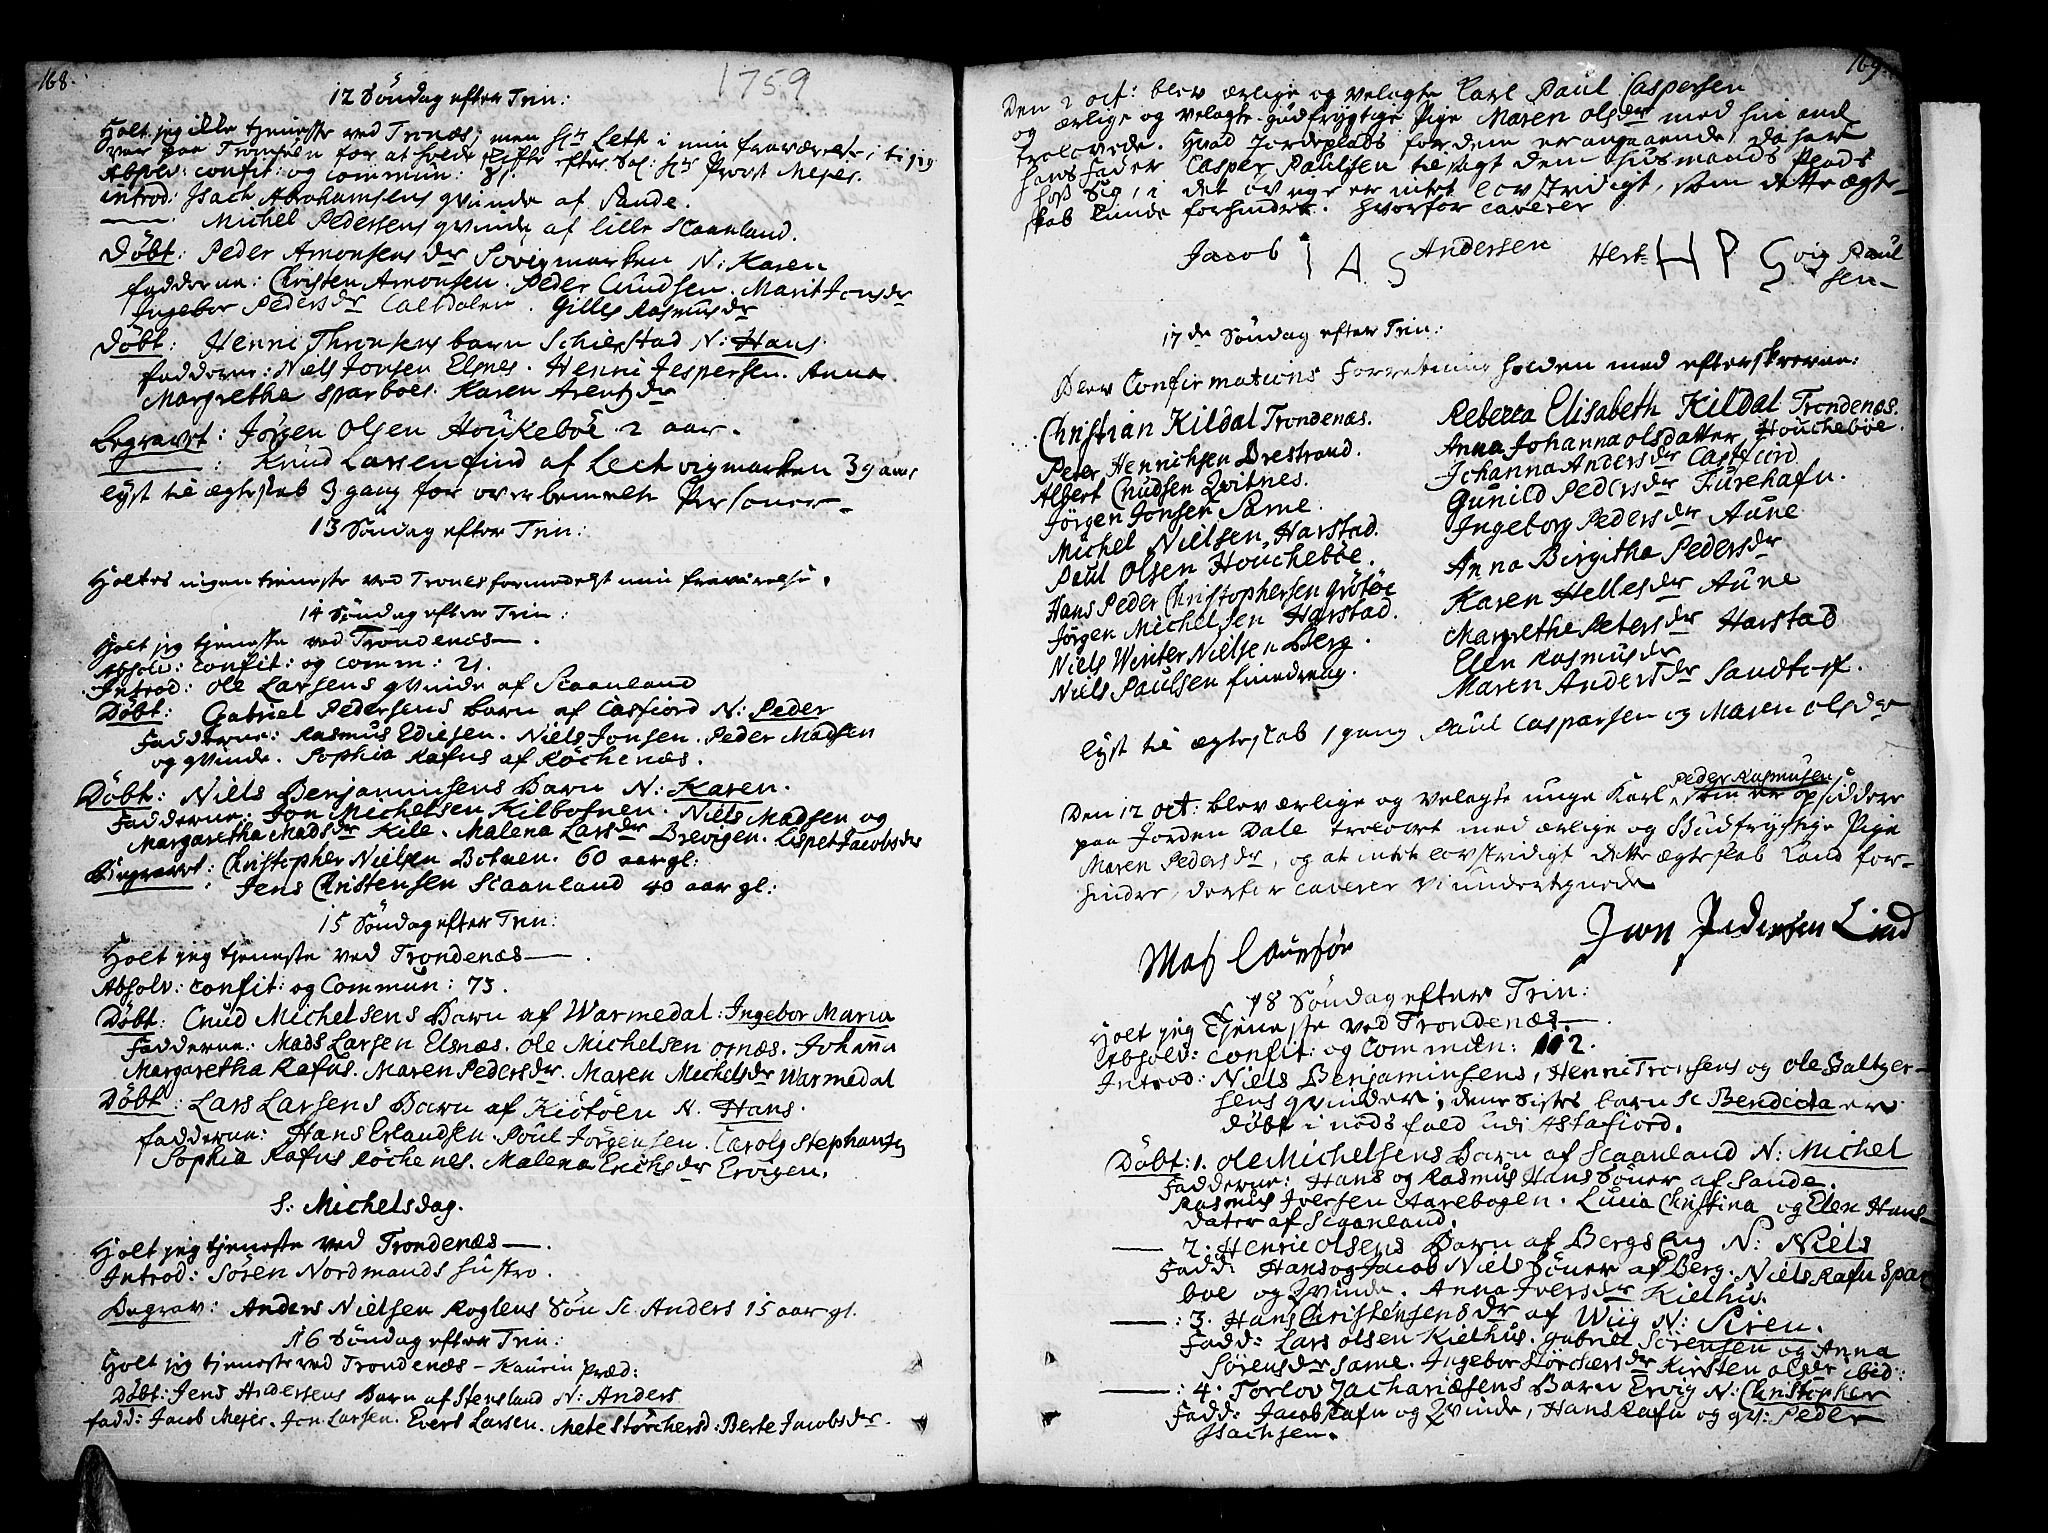 168.
1759
12 Söndag efter Trin:
Holt jeg ikke tjeneste ved Tronæs; men Hr Lett i min fraværelse, ti jeg
var paa Tromsøen for at holde skifte efter Sal: Hr Provst Mejer.
Absolv: confit: og commun: 81.
introd: Isach Abrahamsens qvinde af Sande.
Michel Pedersens qvinde af lille Scaanland.
Döbt: Peder Amonsens dr Sovigmarken N: Karen
fadderne: Christen Amonsen. Peder Cnudsen. Marit Jons dr
Ingebor Peders dr Caltdalen. Gilles Rasmus dr
Döbt: Henni Thronsens barn Schierstad N: Hans
fadderne: Niels Jonsen Elsnes. Henni Jespersen. Anna
Margretha Sparboes. Karen Arentz dr
Begravet: Jörgen Olsen Houkeböe 2 aar.
: Knud Larsen find af Lechvigmarken 39 aar
lyst til ægteskab 3 gang for overbemelte Personer
13 Söndag efter Trin:
Holtes ingen tjeneste ved Trones formedelst min fraværelse.
14 Söndag efter Trin:
Holt jeg tjeneste ved Trondenæs.
Absolv: confit: og comm: 21.
Introd: Ole Larsens qvinde af Scaanland
Döbt: Gabriel Pedersens barn af Casfiord N: Peder
Fadderne: Rasmus Ediesen. Niels Jonsen. Peder Madsen
og qvinde. Sophia Rafns af Röchenæs.
Döbt: Niels Benjaminsens Barn N: Karen.
Fadderne: Jon Michelsen Kilbosnen. Niels Madsen og
Margaretha Mads dr Kile. Malena Lars dr Brevigen. Lispet Jacobs dr
Begravet: Christopher Nielsen Botnen. 60 aar gl:
: Jens Christensen Scaanland 40 aar gl:
15 Söndag efter Trin:
Holt jeg tjeneste ved Trondenæs.
Absolv: confit: og Commun: 73.
Döbt: Cnud Michelsens Barn af Warmedal: Ingebor Maria
Fadderne: Mads Larsen Elsnæs. Ole Michelsen ornæs. Johanna
Margaretha Rafns. Maren Peders dr. Maren Michels dr Warmedal
Döbt: Lars Larsens Barn af Kiötöen N. Hans.
Fadderne: Hans Erlandsen. Poul Jörgensen. Carols Stephansen
Sophia Rafns Röchenes. Malena Erichs dr Ervigen.
S: Michelsdag.
Holt jeg tjeneste ved Trondenæs.
Introd: Sören Nordmands hustro.
Begrav: Anders Nielsen Roglens Sön Sc. Anders 15 aar gl.
16 Söndag efter Trin:
Holt jeg tjeneste ved Trondenæs - Kaurin Præd:
Döbt: Jens Andersens Barn af Stensland N: Anders
fadd: Jacob Mejer. Jon Larsen. Evert Larsen. Mete Störchersd: Berte Jacobs dr.
169.
Den 2 oct: blev ærlige og velagte Karl Paul Caspersen
og ærlige og velagte gudfrygtige Pige Maren ols dr med hin and
trolovede. Hvad Jordeplads for dem er angaaende, da har
hans Fader Casper Paulsen tilsagt dem Husmands Plads
hoss Sig, i det övrige er intet lovstridigt, som dette ægte-
skab kunde forhindre. hvorfor caverer
Jacob I A S Andersen Hert H P S vig Paul
sen
17de Söndag efter Trin:
Blev Confirmations Forretning holden med efterskrevne:
Christian Kildal Trondenæs.
Peter Henrichsen Brestrand.
Albert Cnudsen Qvitnes.
Jörgen Jonsen Same.
Michel Nielsen, Harstad.
Paul Olsen Houcheböe.
Hans Peder Christophersen Grötöe
Jörgen Michelsen Harstad.
Niels Winter Nielsen Berg.
Niels Paulsen finedreng.
Rebecca Elisabeth Kildal Trondenæs.
Anna Johanna olsdatter Houcheböe.
Johanna Anders dr Casfiord
Gunild Peders dr Furehafn.
Ingeborg Peders dr Aune
Anna Birgitha Peders dr
Karen Helles dr Aune
Margrethe Peters dr Harstad
Elen Rasmus dr
Maren Anders dr Sandtorf.
lyst til ægteskab 1 gang Paul Caspersen og Maren ols dr
Den 12 oct: blev ærlige og velagte unge Karl Peder Rasmusen som er opsiddere
paa Jorden Dale trolovet med ærlige og Gudfrygtige Pige
Maren Peders dr, og at intet lovstridigt dette ægteskab kand for-
hindre, derfor caverer vi undertegnede
Jwon Pedersen Lind
Mas Caursör
18 Söndag efter Trin:
Holt jeg Tjeneste ved Trondenæs.
Absolv: confit: og Commun: 112.
Introd: Niels Benjaminsens, Henni Tronsens og Ole Baltzer-
sens qvinder; dens sistes barn Sc Bendicta er
döbt i nöds fald udi Astafiord.
Döbt: 1. Ole Michelsens Barn af Scaanland N: Michel
Fadderne: Hans og Rasmus Hans Söner af Sande.
Rasmus Iversen Aarebogen. Lucia Christina og Elen Hans-
dater af Scaanland.
2. Henric olsens Barn af Bergs Eng N: Niels
Fadd: Hans og Jacob Niels Söner af Berg. Niels Rafn Spar
boe og Qvinde. Anna Ivers dr Kielhus.
: 3. Hans Christensens dr af Wiig N: Siren.
Fadd: Lars olsen Kielhus. Gabriel Sörensen og Anna
Sörens dr Same. Ingebor Störchers dr Kirsten ols dr ibid:
: 4. Torlov Zachariæsens Barn Ervig N: Christopher
Fadd: Jacob Rafn og Qvinde, Hans Rafn og qv: Peder
Isachsen.